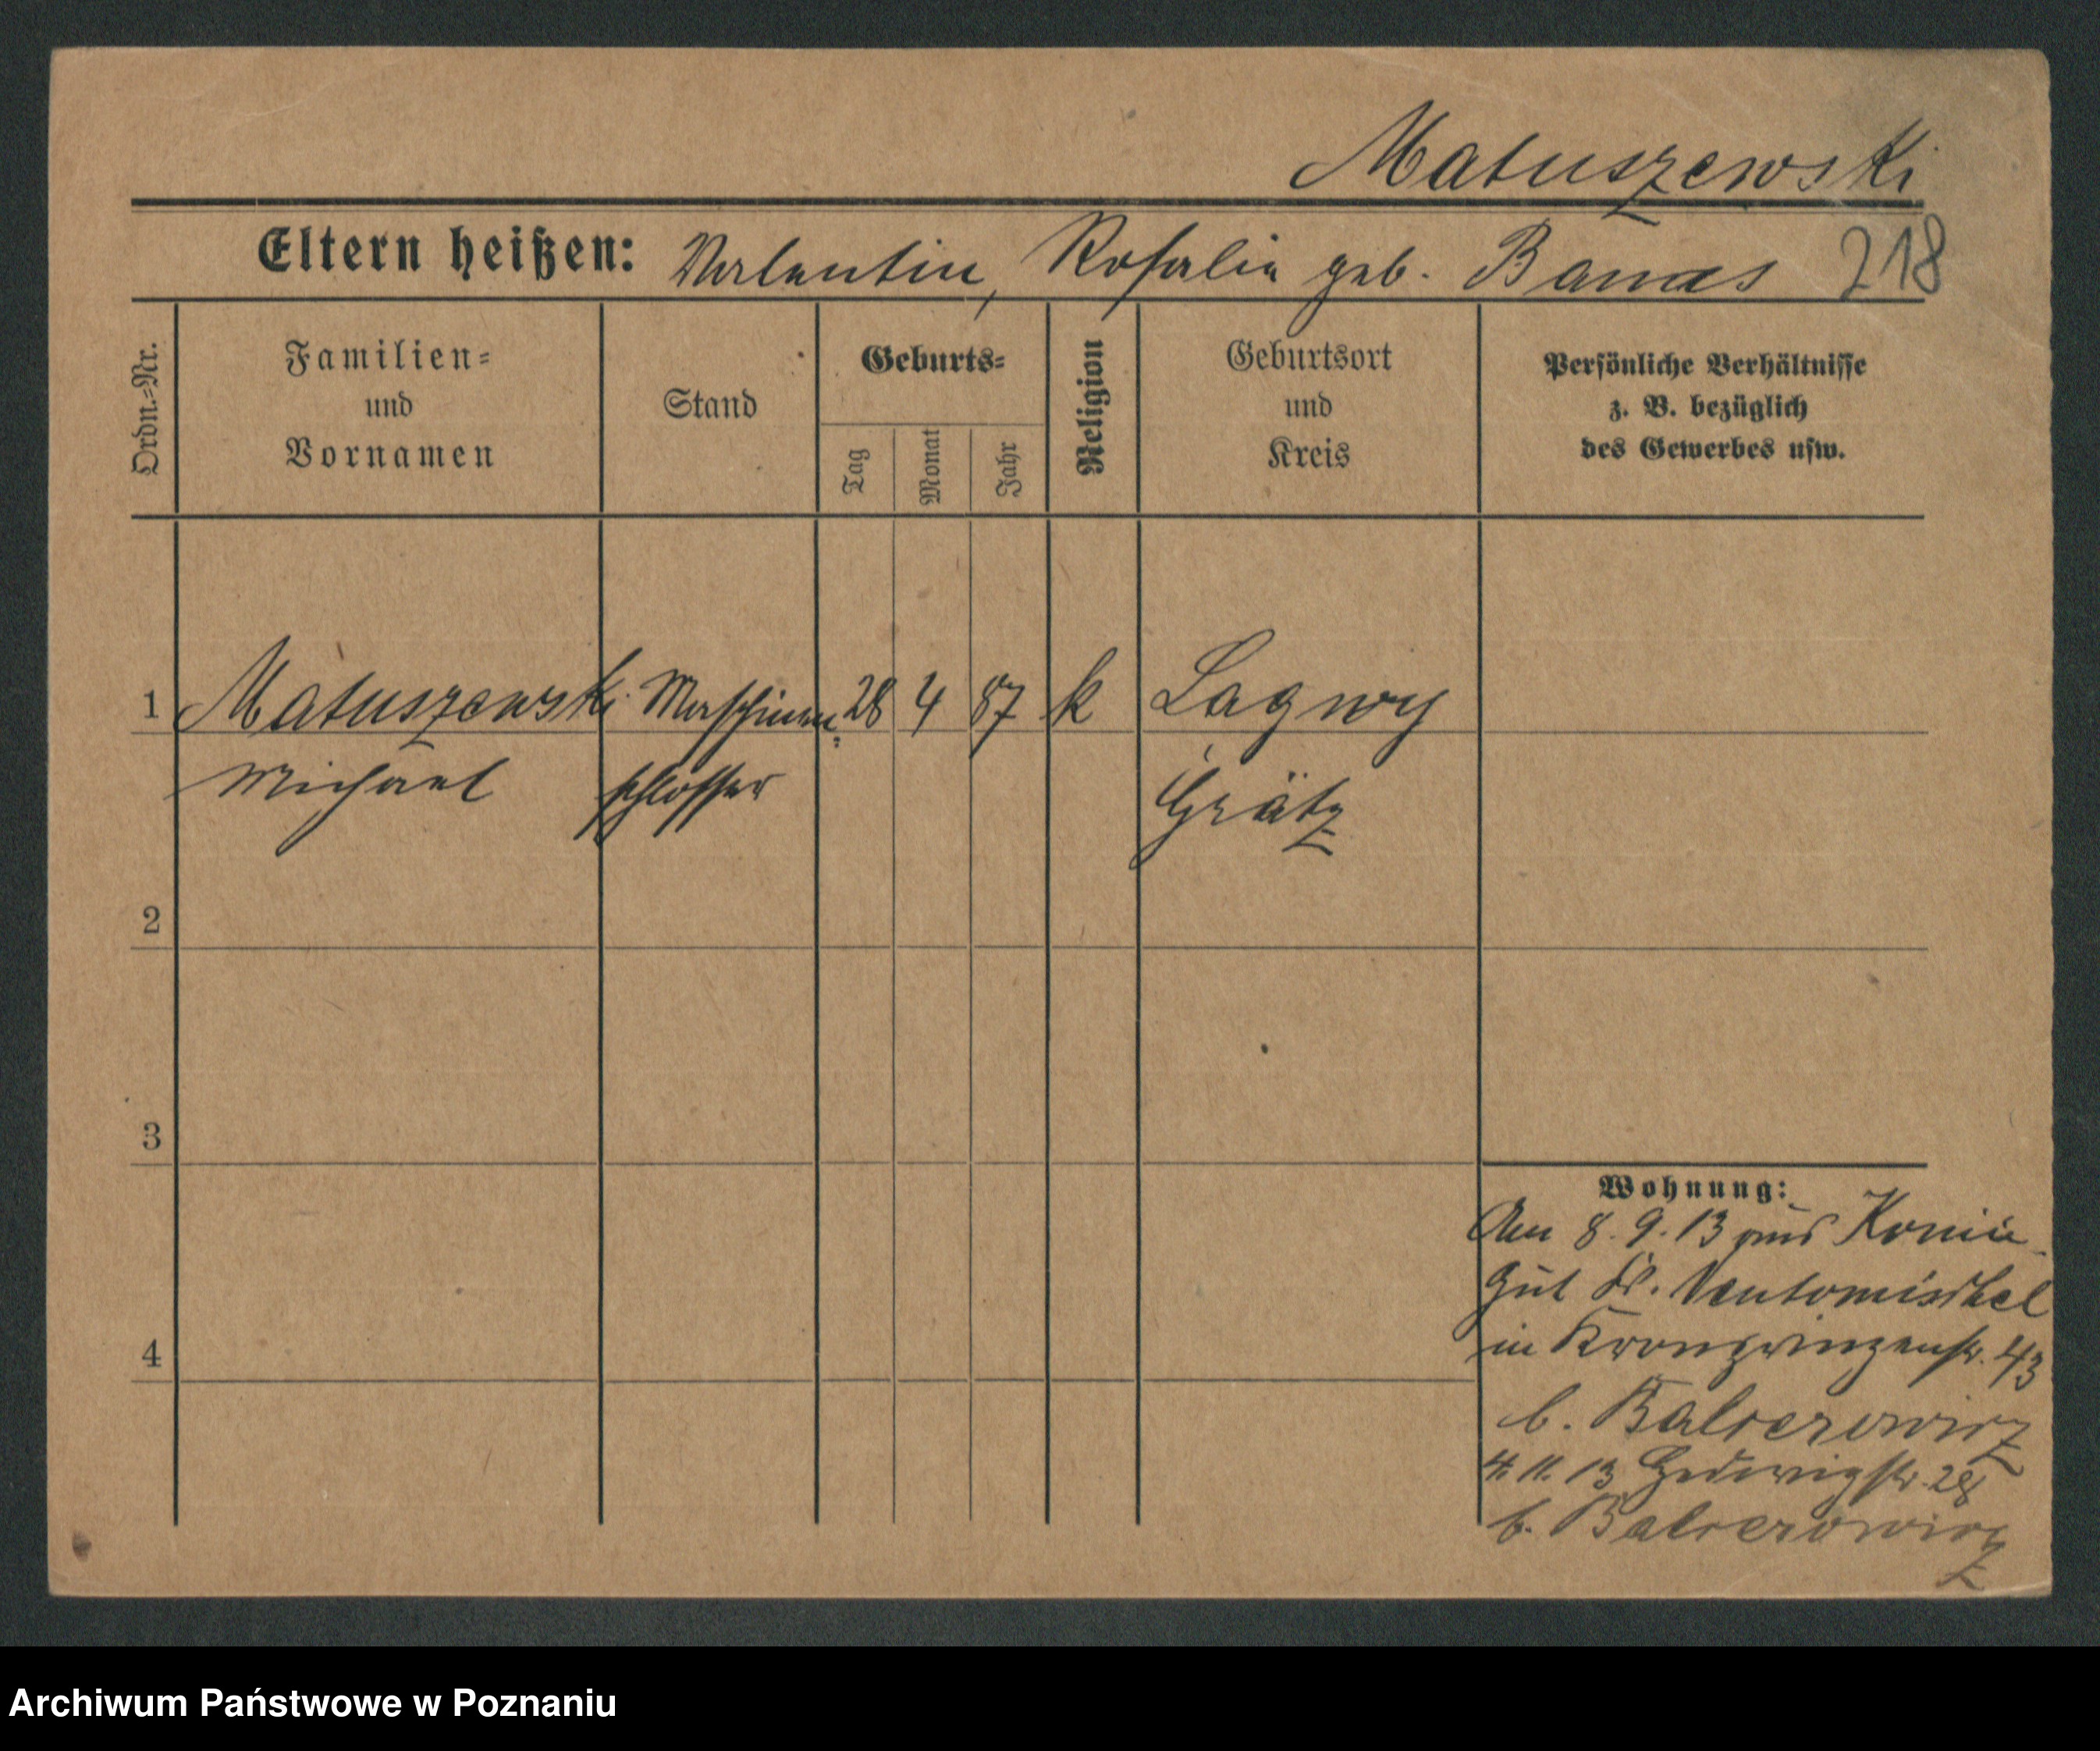 Matuszewski
Eltern heißen: Valentin, Rosalie geb. Banas 218
Ordn.-Nr.
Familien-
und
Vornamen
Stand
Geburts-
Tag
Monat
Jahr
Religion
Geburtsort
und
Kreis
Persönliche Verhältnisse
z. B. bezüglich
des Gewerbes usw.
1 Matuszewski Maschinen- 28 4 87 k Lagwy
Michael schlosser Grätz
2
3
4
Wohnung:
Am 8.9.13 aus Konin
Gut Kr. Neutomischel
in Kronprinzenstr. 43
b. Balcerowicz
4.11.13 Hedwigstr. 28
b. Balcerowicz
Archiwum Państwowe w Poznaniu